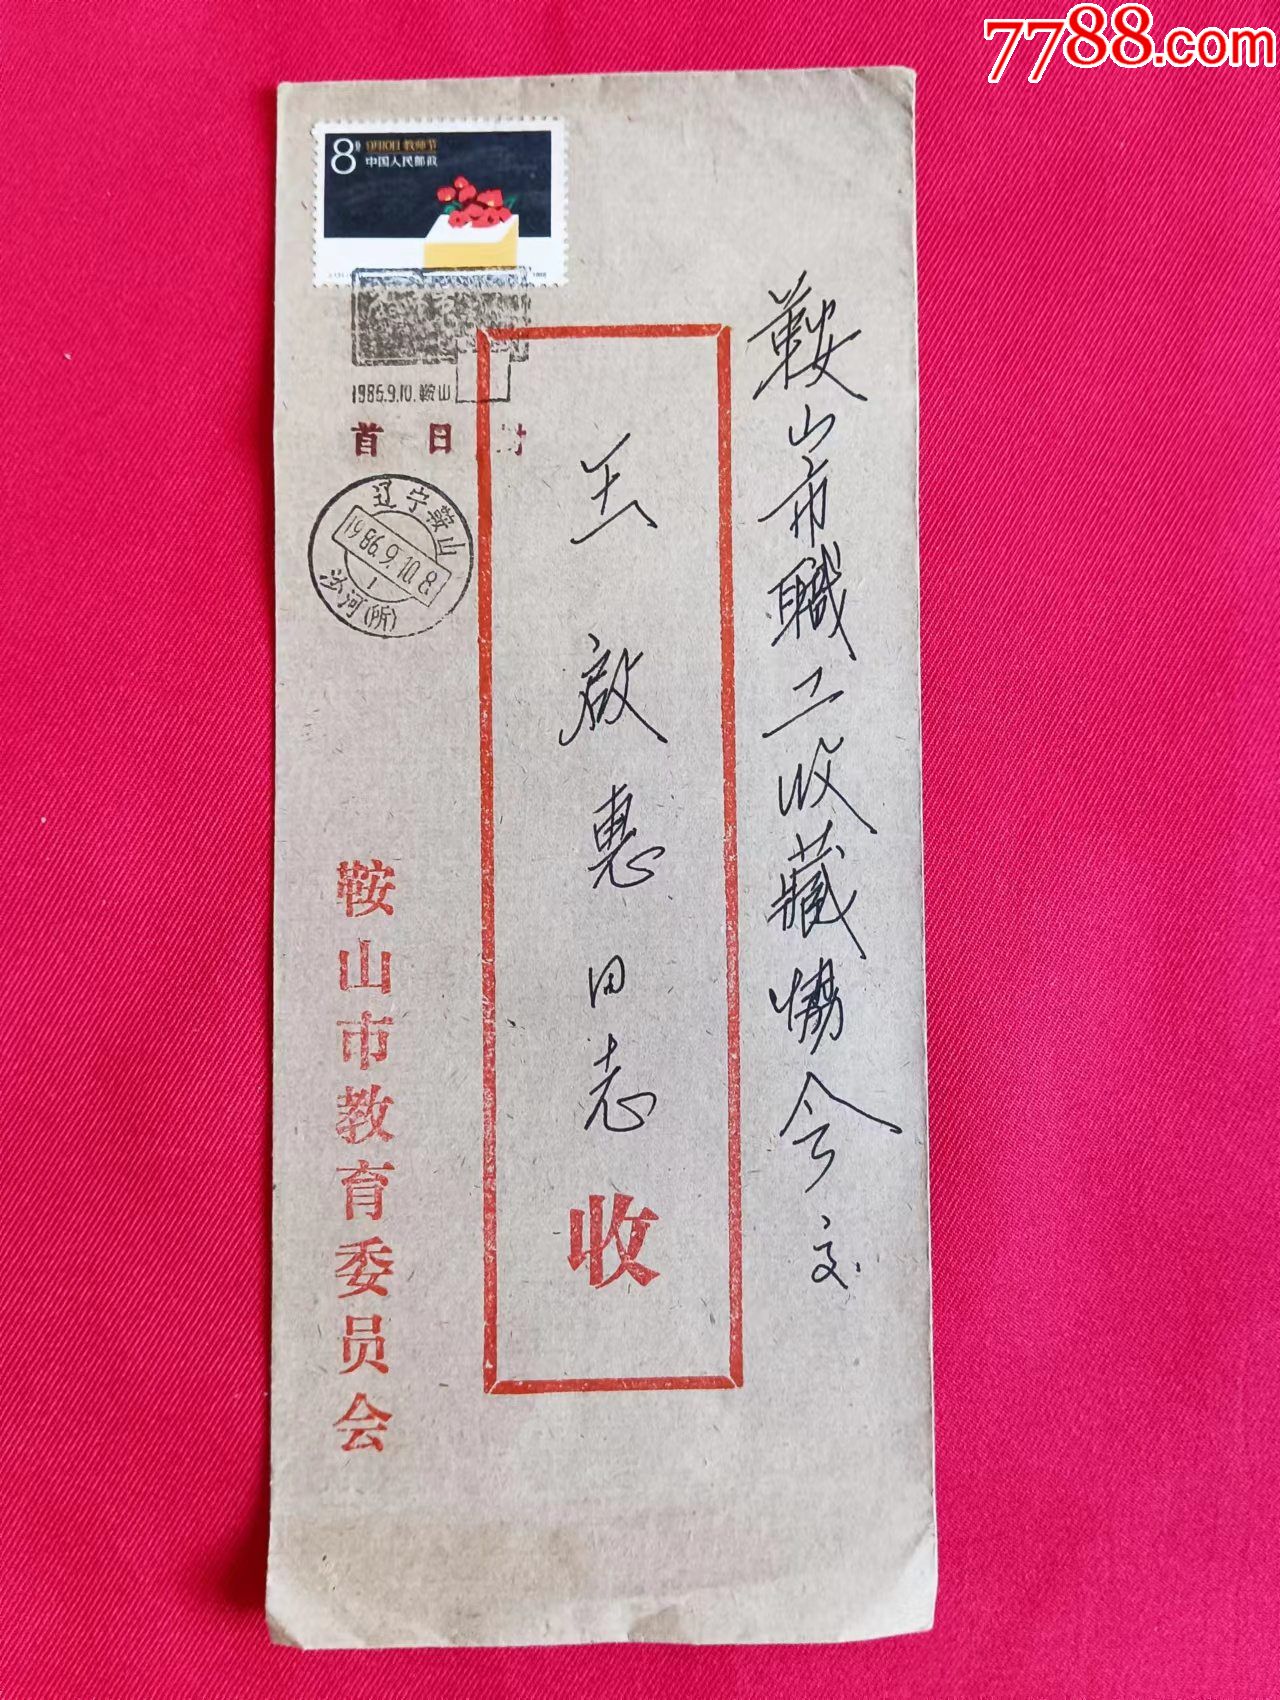 7788.com
8分
9月10日 教师节
中国人民邮政
1986.9.10.鞍山
首日封
辽宁鞍山
1986.9.10.8
1
汾河(所)
鞍山市職工收藏協会交
王啟惠同志
收
鞍山市教育委员会